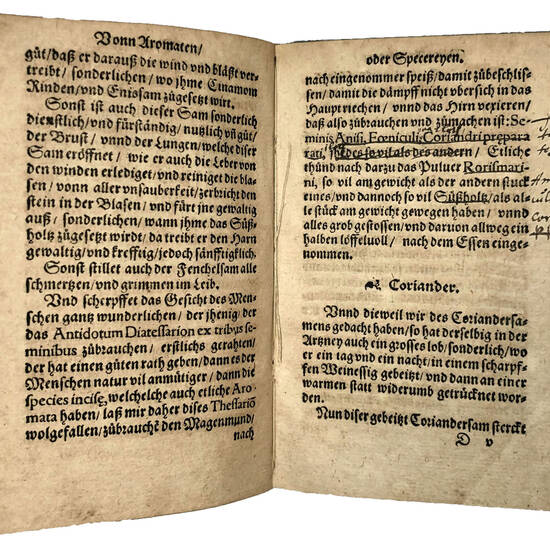 Vonn Aromaten/
gůt/daß er darauß die wind vnd bläst ver-
treibt/ sonderlichen/ wo jhme Cinamom
Rinden/ vnd Enissam zůgesetzt wirt.
Sonst ist auch dieser Sam sonderlich
dienstlich/ vnd fürständig/ nutzlich vñ gůt/
der Brust/ vnnd der Lungen/ welche diser
Sam eröffnet/ wie er auch die Leber von
den winden erlediget/ vnd reiniget die bla-
sen/ vonn aller vnsauberkeit/ zerbricht den
stein in der Blasen/ vnd fürt jne gewaltig
auß/ sonderlichen/ wann jhme das Süß-
holtz zůgesetzt wirdt/ da treibt er den Harn
gewaltig/vnd krefftig/jedoch sänffigklich.
Sonst stillet auch der Fenchelsam alle
schmertzen/ vnd grimmen im Leib.
Vnd scherpffet das Gesicht des Men-
schen gantz wunderlichen/ der jhenig/ der
das Antidotum Diatessarion ex tribus se-
minibus zůbrauchen/ erstlichs gerahten/
der hat einen gůten rath geben/ dann es der
Menschen natur vil anmůtiger/ dann die
species incisę, welchelche auch etliche Aro-
mata haben/ laß mir daher dises Thessariõ
wolgefallen/zůbrauchẽ den Magenmund/
nach
oder Specereyen.
nach eingenommer speiß/ damit zůbeschlis-
sen/ damit die dämpff nicht vbersich in das
Haupt riechen/ vnnd das Hirn vexieren/
daß also zůbrauchen vnd zůmachen ist: Se-
minis Anisi, Fœniculi, Coriandri prepara-
rati, des so vil als des andern/ Etliche
thůnd nach darzu das Puluer Rorismari-
ni, so vil am gewicht als der andern stuck
eines/ vnd dannoch so vil Süßholtz/ als al-
le stück am gewicht gewegen haben/ vnnd
alles grob gestossen/ vnd daruon allweg ein
halben löffeluoll/ nach dem Essen einge-
nommen.
Coriander.
Vnnd dieweil wir des Coriandersa-
mens gedacht haben/ so hat derselbig in der
Artzney auch ein grosses lob/ sonderlich/ wo
er ein tag vnd ein nacht/ in einem scharpf-
fen Weinessig gebeitzt/ vnd dann an einer
warmen statt widerumb getrücknet wor-
den.
Nun diser gebeitzt Coriandersam sterckt
D v